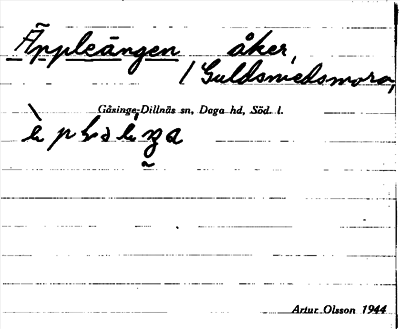 Äppleängen åker,
/ Guldsmedsmora,
Gåsinge-Dillnäs sn, Daga hd, Söd. l.
Artur Olsson 1944